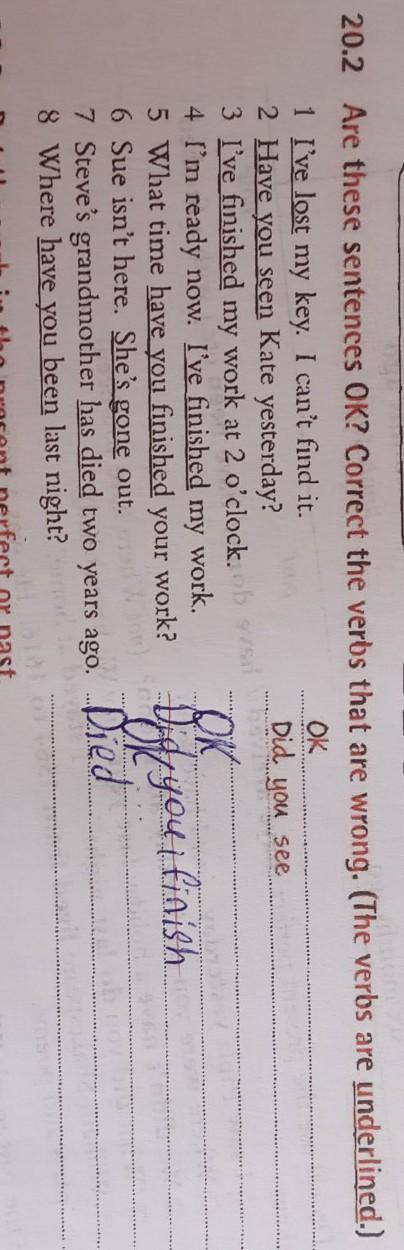 20.2 Are these sentences OK? Correct the verbs that are wrong. (The verbs are underlined.)
1 I've lost my key. I can't find it. OK
2 Have you seen Kate yesterday? Did you see
3 I've finished my work at 2 o'clock.
4 I'm ready now. I've finished my work. OK
5 What time have you finished your work? Did you finish
6 Sue isn't here. She's gone out. OK
7 Steve's grandmother has died two years ago. Died
8 Where have you been last night?
in the present perfect or past